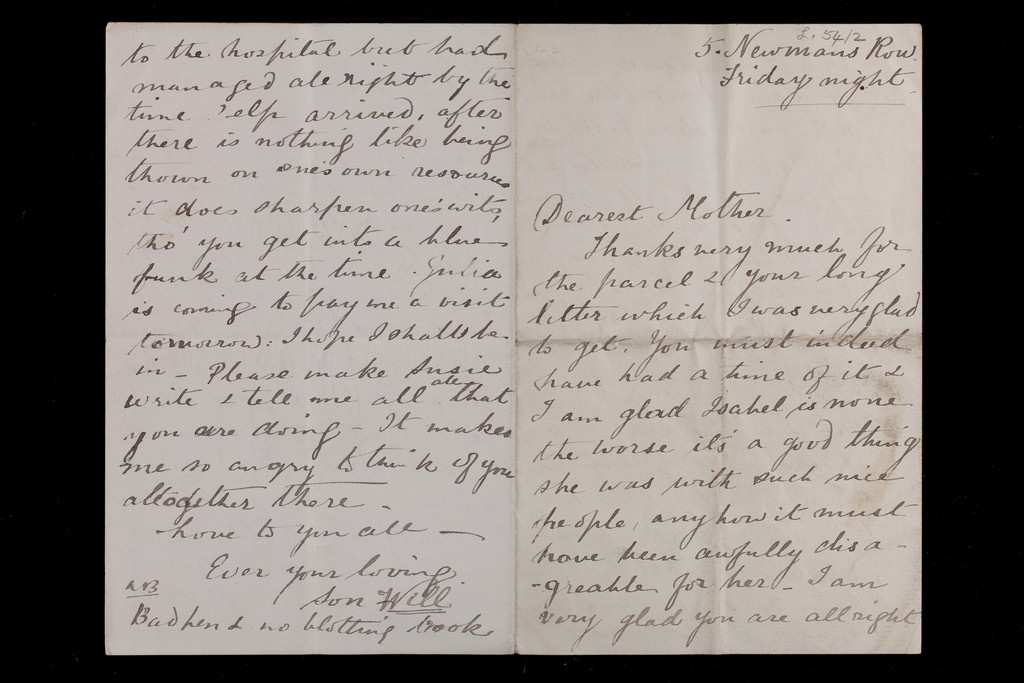 L. 54/2
5. Newmans Row.
Friday night.
Dearest Mother.
Thanks very much for
the parcel & your long
letter which I was very glad
to get. You must indeed
have had a time of it &
I am glad Isabel is none
the worse it's a good thing
she was with such nice
people, anyhow it must
have been awfully disa-
-greable for her - I am
very glad you are all right
to the hospital but had
managed all right by the
time 'elp arrived, after
there is nothing like being
thown on one's own resources
it does sharpen one's wits,
tho' you get into a blue
funk at the time. Julia
is coming to pay me a visit
tomorrow: I hope I shall be
in - Please make Susie
write & tell me all that
you are doing - It makes
me so angry to think of you
altogether there -
Love to you all -
Ever your loving
son Will
NB
Bad pen & no blotting book